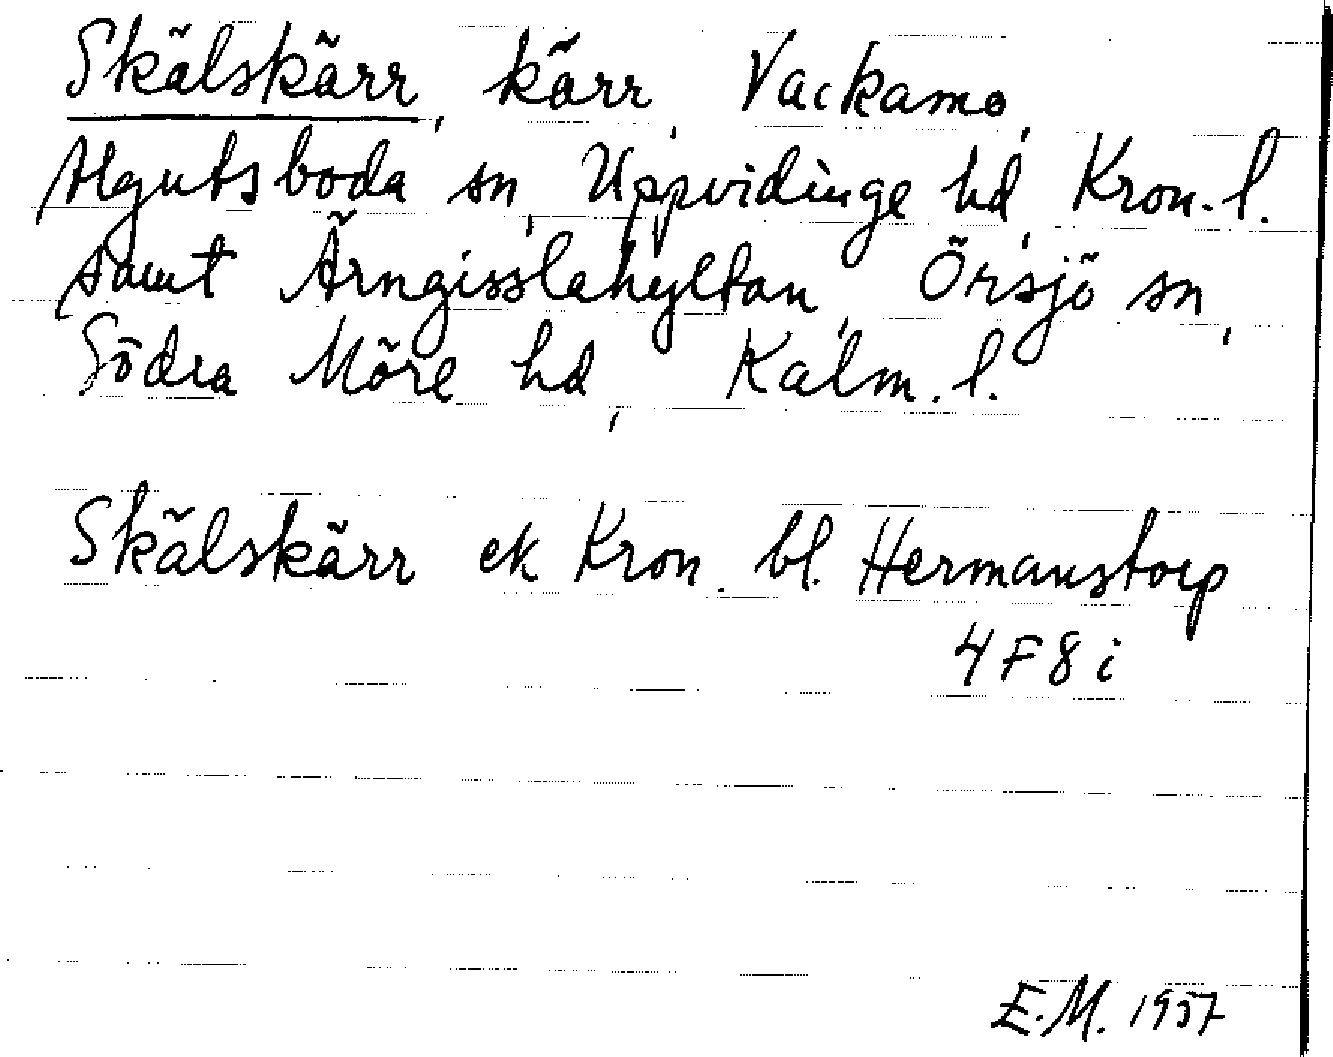 Skälskärr, kärr, Vackamo,
Algutsboda sn, Uppvidinge hd, Kron. l.
samt Ärngisslahyltan, Örsjö sn,
Södra Möre hd, Kalm. l.
Skälskärr ek Kron. bl. Hermanstorp
4 F 8 i
E.M. 1957